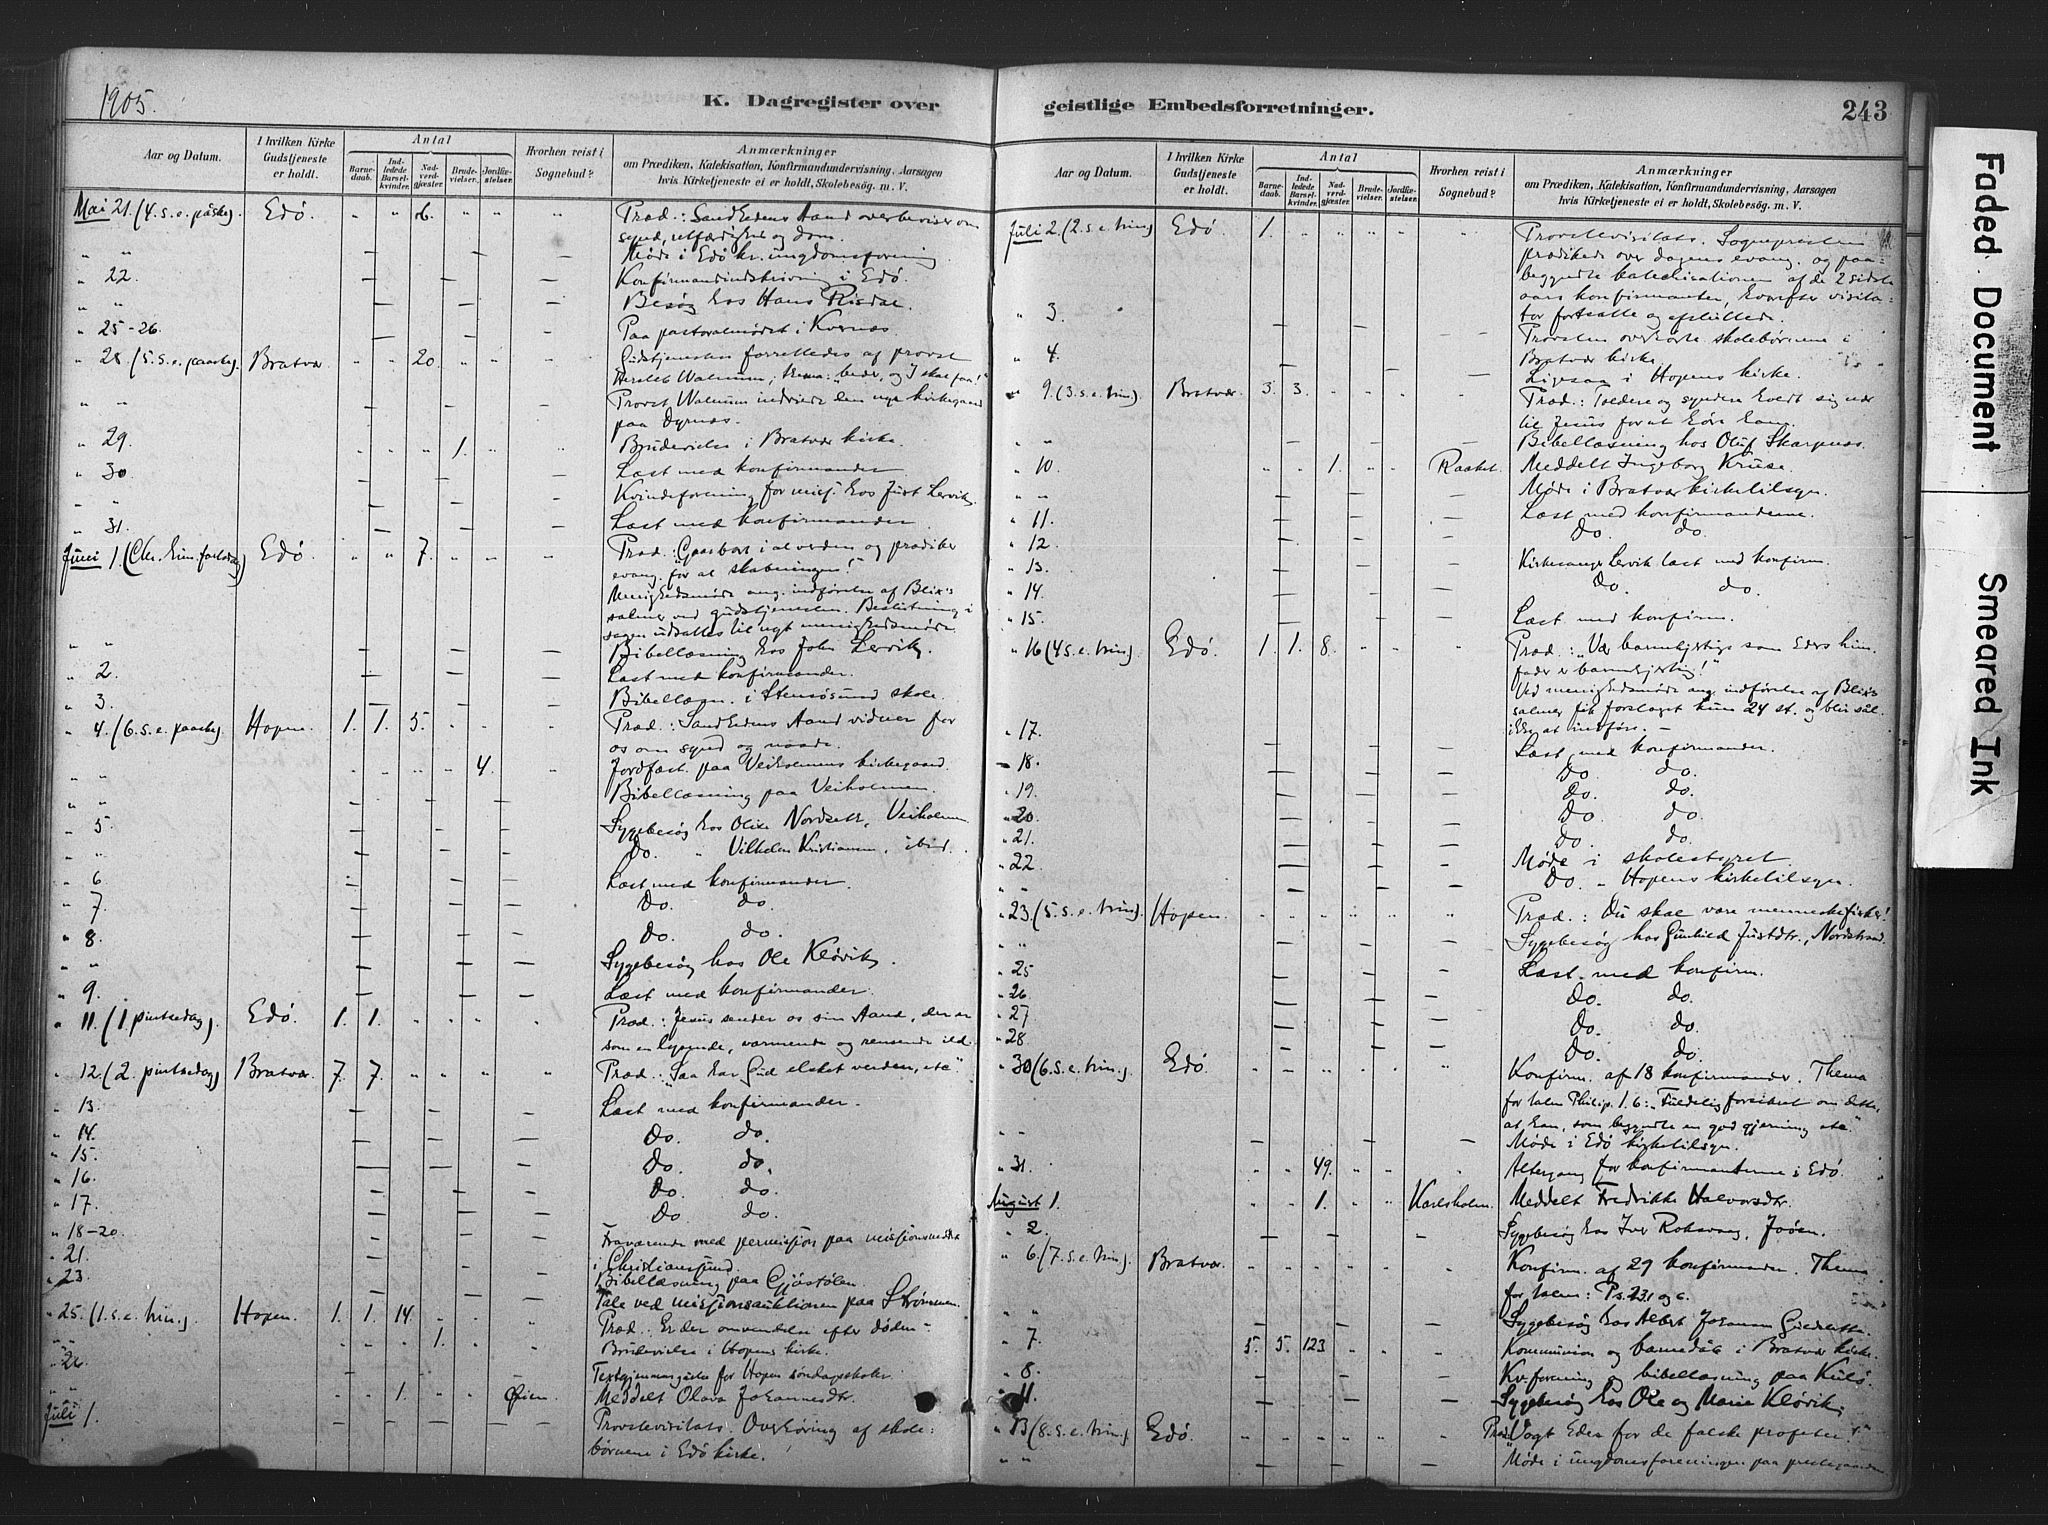 1905.
K. Dagregister over
Aar og Datum.
I hvilken Kirke Gudstjeneste er holdt.
Antal
Barne-daab.
Ind-ledede Barsel-kvinder.
Nad-verd-gjæster.
Brude-vielser.
Jordfæ-stelser.
Hvorhen reist i Sognebud?
Anmærkninger
om Prædiken, Katekisation, Konfirmandundervisning, Aarsagen
hvis Kirketjeneste ei er holdt, Skolebesøg. m. V.
Mai 21. (4. s. e. påske). Edø. " " 6. " " " Præd.: Sandhedens Aand overbeviser om
synd, retfærdighed og dom.
" " Møde i Edø kr. ungdomsforening
" 22. Konfirmandindskrivning i Edø.
" " Besøg hos Hans Risdal.
" 25-26. Paa pastoralmødet i Kvernæs.
" 28. (5. s. e. paaske). Bratvær " " 20. " " " Gudstjenesten forrettedes af provst
Walnum; thema: "beder, og I skal faa!"
" " Provst Walnum indviede den nye kirkegaard
paa Dyrnæs.
" 29. " " " 1. " " Brudevielse i Bratvær kirke.
" 30. Læst med konfirmander
" " Kvindeforening for miss. hos Just Lervik.
" 31. Læst med konfirmander.
Juni 1. (Chr. himmelfartsdag) Edø. " " 7. " " " Præd.: "Gaar bort i al verden og prædiker
evang. for al skabningen!"
Menighedsmøde ang. indførelse af Blix's
salmer ved gudstjenesten. Beslutning i
sagen udsattes til nyt menighedsmøde.
" " Bibellæsning hos John Lervik.
" 2. Læst med konfirmander.
" 3. Bibellæsn. i Stensøsund skole.
" 4. (6. s. e. paaske). Hopen. 1. 1. 5. " " " Præd.: Sandhedens Aand vidner for
os om synd og naade.
" " " " " " 4. " Jordfæst. paa Veiholmens kirkegaard.
" " Bibellæsning paa Veiholmen.
" 5. Sygebesøg hos Oline Nordseth, Veiholmen
" " Do. " Vilhelm Kristiansen, ibid.
" 6. Læst med konfirmander.
" 7. Do. do.
" 8. Do. do.
" " Sygebesøg hos Ole Kløvik.
" 9. Læst med konfirmander.
" 11. (1. pintsedag). Edø. 1. 1. " " " " Præd.: Jesus sender os sin Aand, der er
som en lysende, varmende og rensende ild.
" 12. (2. pintsedag) Bratvær. 7. 7. " " " " Præd.: "Saa har Gud elsket verden, etc."
" 13. Læst med konfirmander.
" 14. Do. do.
" 15. Do. do.
" 16. Do. do.
" 17. Do. do.
" 18-20. Fraværende med permission paa missionsmødet
i Christianssund.
" 21. Bibellæsning paa Gjøstølen.
" 23. Tale ved missionsauktionen paa Strømmen.
" 25. (1. s. e. trin.). Hopen. 1. 1. 14. " " " Præd.: Er der omvendelse efter døden?
" " " " " 1. " " Brudevielse i Hopens kirke.
" 26. Textgjennemgaaelse for Hopen søndagsskoler.
" " " " 1. " " Øien. Meddelt Olava Johannesdtr.
Juli 1. Provstevisitats. Overhøring af skole-
børnene i Edø kirke.
geistlige Embedsforretninger.
243
Aar og Datum.
I hvilken Kirke Gudstjeneste er holdt.
Antal
Barne-daab.
Ind-ledede Barsel-kvinder.
Nad-verd-gjæster.
Brude-vielser.
Jordfæ-stelser.
Hvorhen reist i Sognebud?
Anmærkninger
om Prædiken, Katekisation, Konfirmandundervisning, Aarsagen
hvis Kirketjeneste ei er holdt, Skolebesøg. m. V.
Juli 2. (2. s. e. trin) Edø. 1. " " " " " Provstevisitats. Sognepresten
prædikede over dagens evang. og paa-
begyndte katechisationen af de 2 sidste
aars konfirmanter, hvorefter visita-
tor fortsatte og afsluttede.
" 3. Provsten overhørte skolebørnene i
Bratvær kirke.
" 4. Ligesaa i Hopens kirke.
" 9. (3. s. e. trin). Bratvær. 3. 3. " " " " Præd.: Toldere og syndere holdt sig nær
til Jesus for at høre ham.
" " Bibellæsning hos Oluf Skarpnæs.
" 10. " " 1. " " Raaket. Meddelt Ingeborg Kruse.
" " Møde i Bratvær kirketilsyn.
" 11. Læst med konfirmanderne.
" 12. Do. do.
" 13. Kirkesanger Lervik læst med konfirm.
" 14. Do. do.
" 15. Læst med konfirm.
" 16 (4. s. e. trin). Edø. 1. 1. 8. " " " Præd.: "Vær barmhjertige som Eders him.
fader er barmhjertig!"
Ved menighedsmøde ang. indførelse af Blix's
salmer fik forslaget kun 24 st. og blir
at indføre. –
" 17. Læst med konfirmander.
" 18. Do. do.
" 19. Do. do.
" 20. Do. do.
" 21. Do. do.
" 22. Møde i skolestyret.
" " Do. " Hopens kirketilsyn.
" 23. (5. s. e. trin). Hopen. " " " " " " Præd.: Du skal være menneskefisker!
" " Sygebesøg hos Gunhild Justdtr., Nordstrand.
" 25 Læst med konfirm.
" 26. Do. do.
" 27 Do. do.
" 28. Do. do.
" 30 (6. s. e. trin.). Edø. " " " " " " Konfirm. af 18 konfirmander. Thema
for talen Philip. 1. 6: "Fuldelig forsikret om dette,
at han, som begyndte en god gjerning etc."
" " Møde i Edø kirketilsyn.
" 31. " " 49. " " " Altergang for konfirmanterne i Edø.
August 1. " " 1. " " Karlsholm. Meddelt Fredrikke Halvorsdtr.
" 2. Sygebesøg hos Iver Roksvaag, Joøen.
" 6. (7. s. e. trin). Bratvær. " " " " " " Konfirm. af 29 konfirmander. Thema
for talen: Ps. 23.1 og c.
" " Sygebesøg hos Albert Johansen
" 7. 5. 5. 123 " " " Kommunion og barnedåb i Bratvær kirke.
" 8. Kv.forening og bibellæsning paa Kulø.
" 11. Sygebesøg hos Ole og Marie Kløvik.
" 13 (8. s. e. trin.). Edø. " " " " " " Præd. "Vogt Eder for de falske profeter!"
" " Møde i ungdomsforeningen paa prestegaarden
Faded Document
Smeared Ink